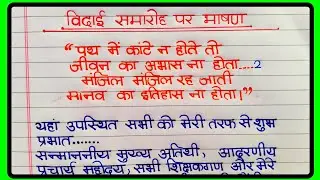 विदाई समारोह पर भाषण
“पथ में कांटे न होते तो
जीवन का अभास ना होता....2
मंजिल मंजिल रह जाती
मानव का इतिहास ना होता।”
यहां उपस्थित सभी को मेरी तरफ से शुभ
प्रभात.......
सम्माननीय मुख्य अतिथी, आदरणीय
प्रचार्य महोदय, सभी शिक्षकगण और मेरे